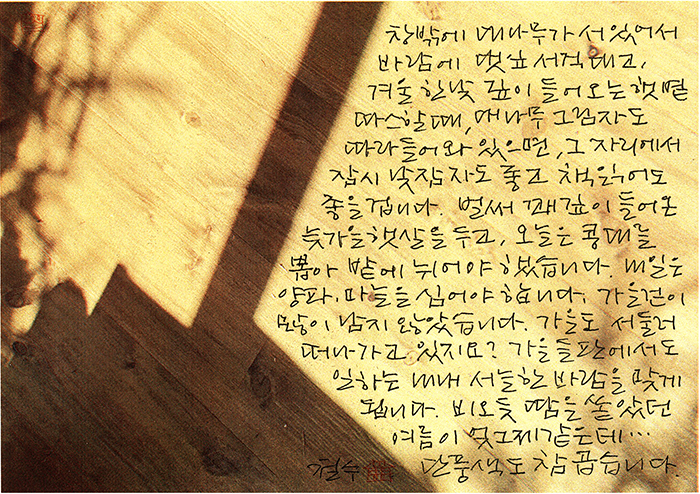 창밖에 대나무가 서 있어서
바람에 댓잎 서걱대고,
겨울 한낮 깊이 들어오는 햇볕
따스할 때, 대나무 그림자도
따라들어와 있으면, 그 자리에서
잠시 낮잠자도 좋고 책읽어도
좋을겁니다. 벌써 꽤 깊이 들어온
늦가을햇살을 두고, 오늘은 콩대를
뽑아 밭에 뉘어야 했습니다. 내일은
양파·마늘을 심어야 합니다. 가을걷이
많이 남지 않았습니다. 가을도 서둘러
떠나가고 있지요? 가을들판에서도
일하는 내내 서늘한 바람을 맞게
됩니다. 비오듯 땀을 쏟았던
여름이 엊그제 같은데…
철수 단풍색도 참 곱습니다.